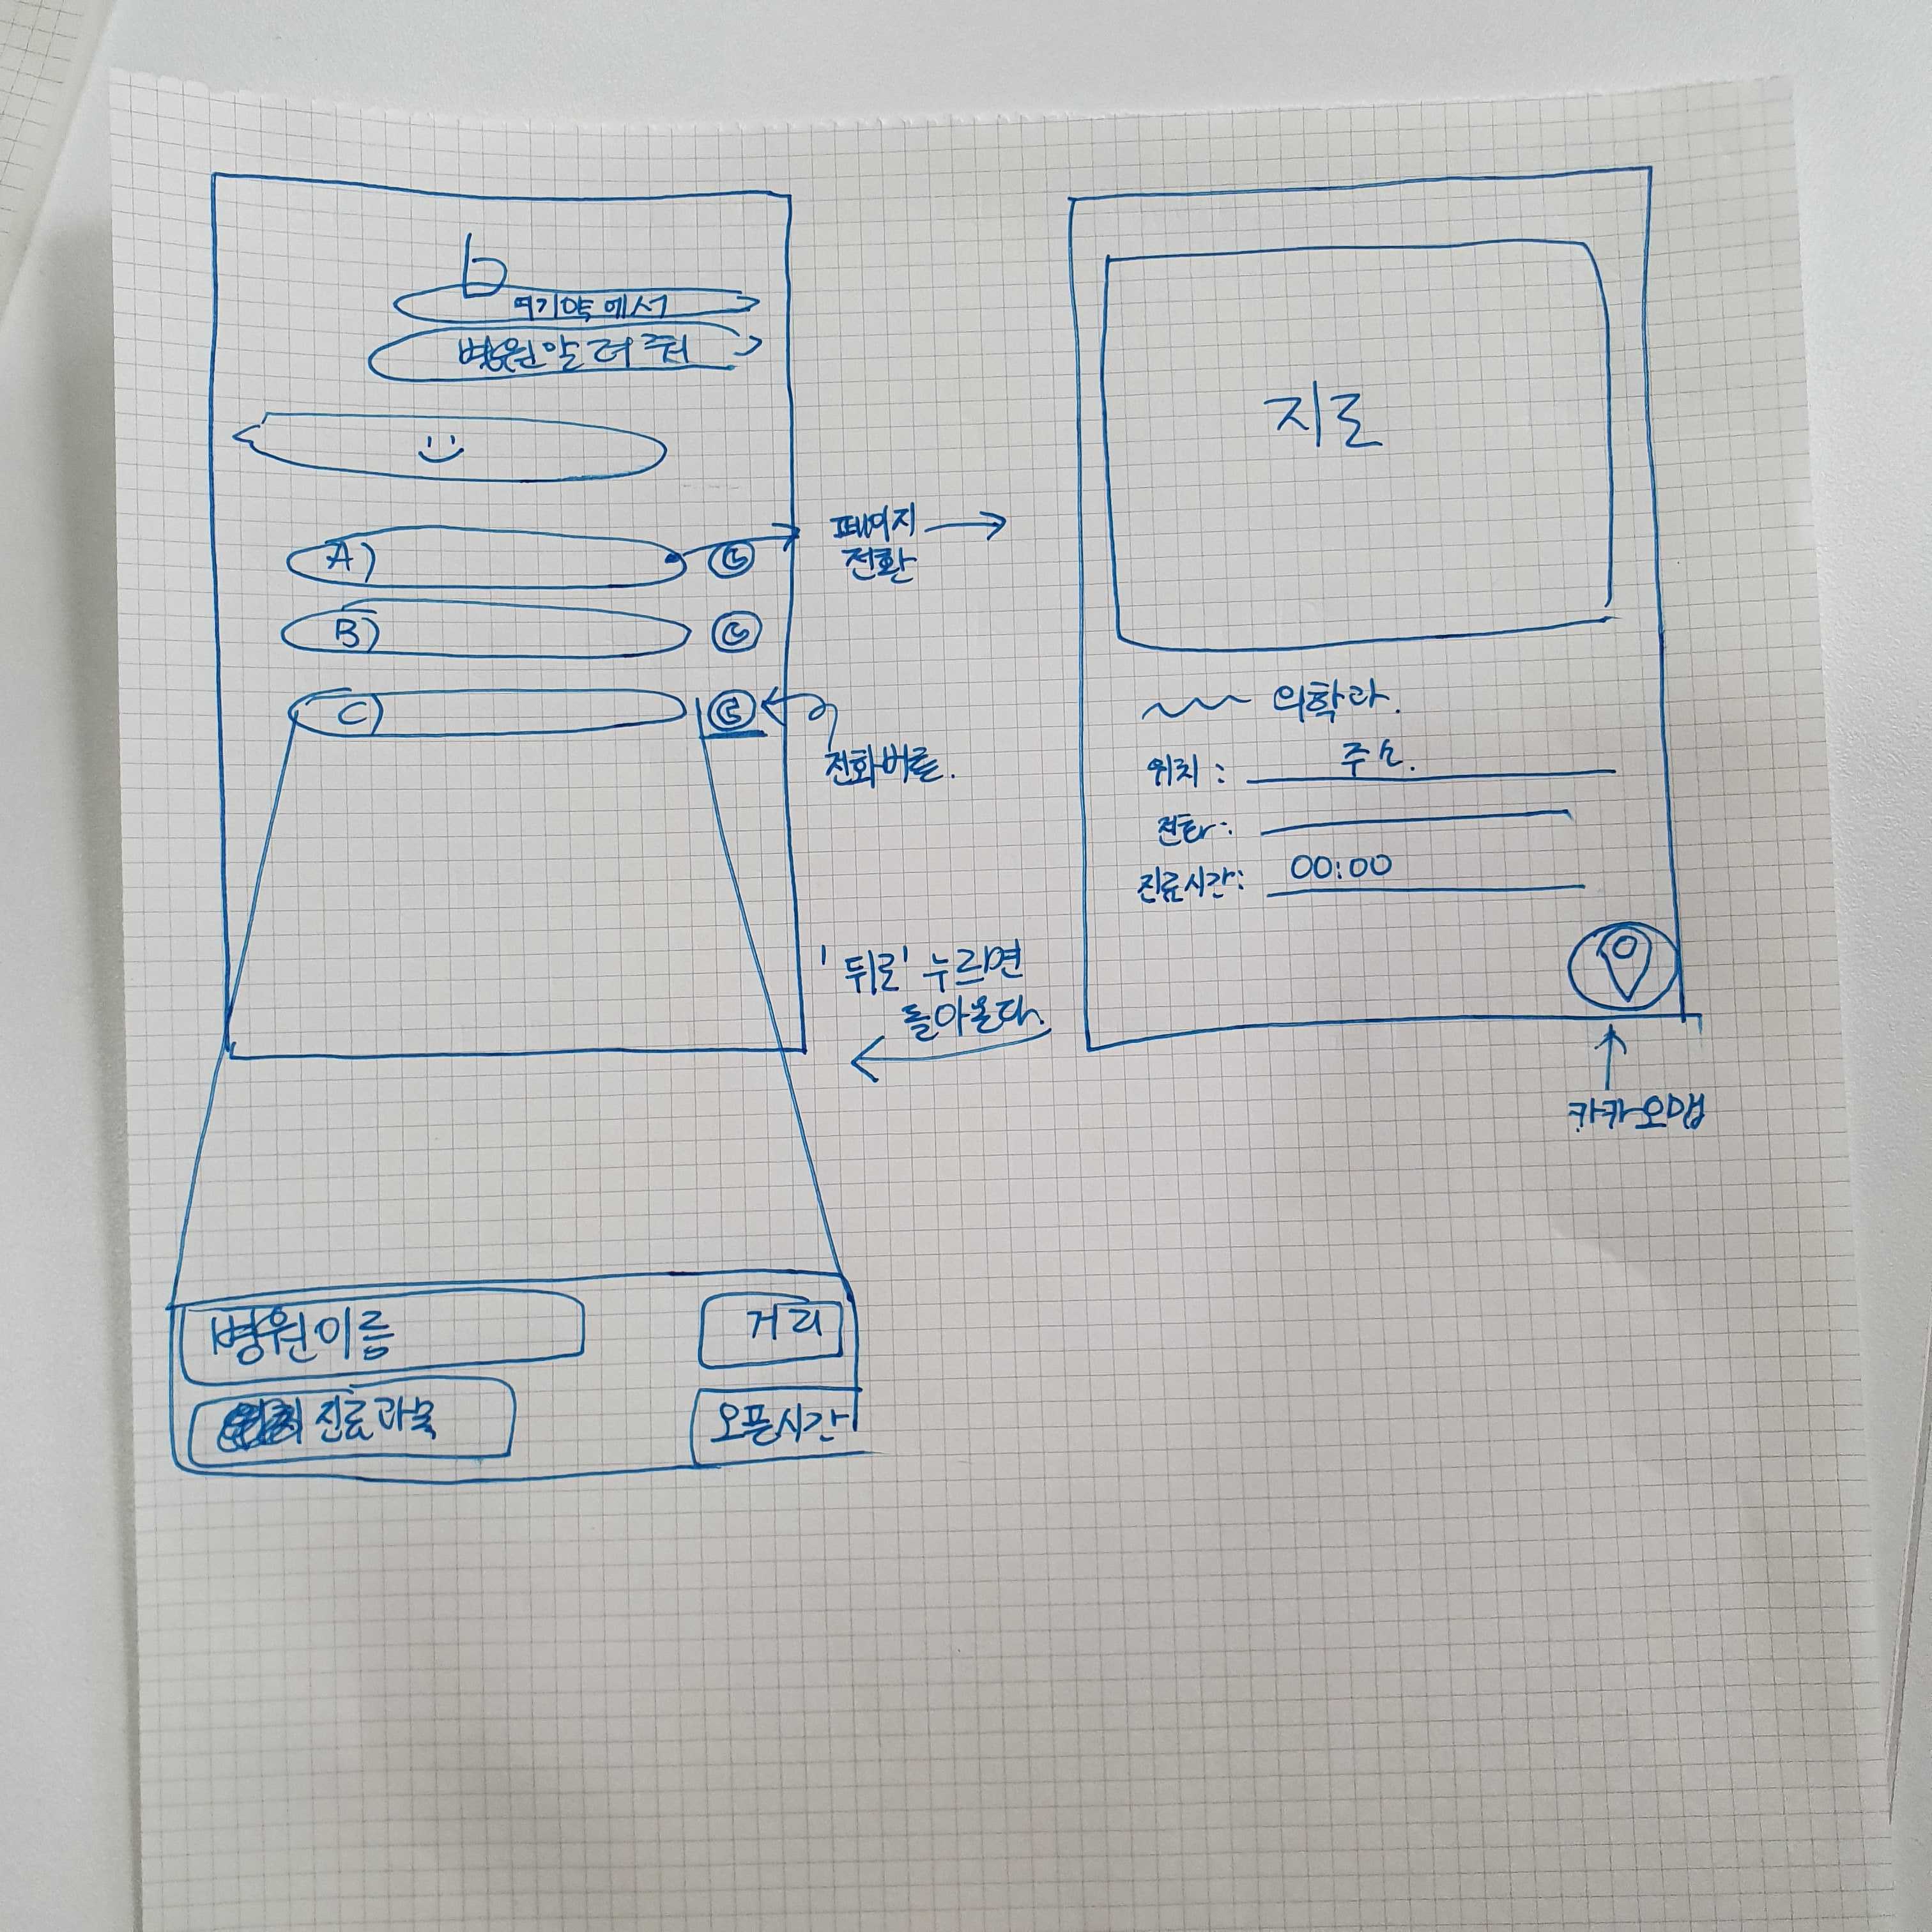 b
여기약에서
병원알려줘
A)
B)
C)
페이지
전환
전화버튼.
'뒤로' 누르면
돌아온다.
병원이름
거리
진료과목
오픈시간
지도
의학과.
위치 : 주소.
전화:
진료시간: 00:00
카카오맵